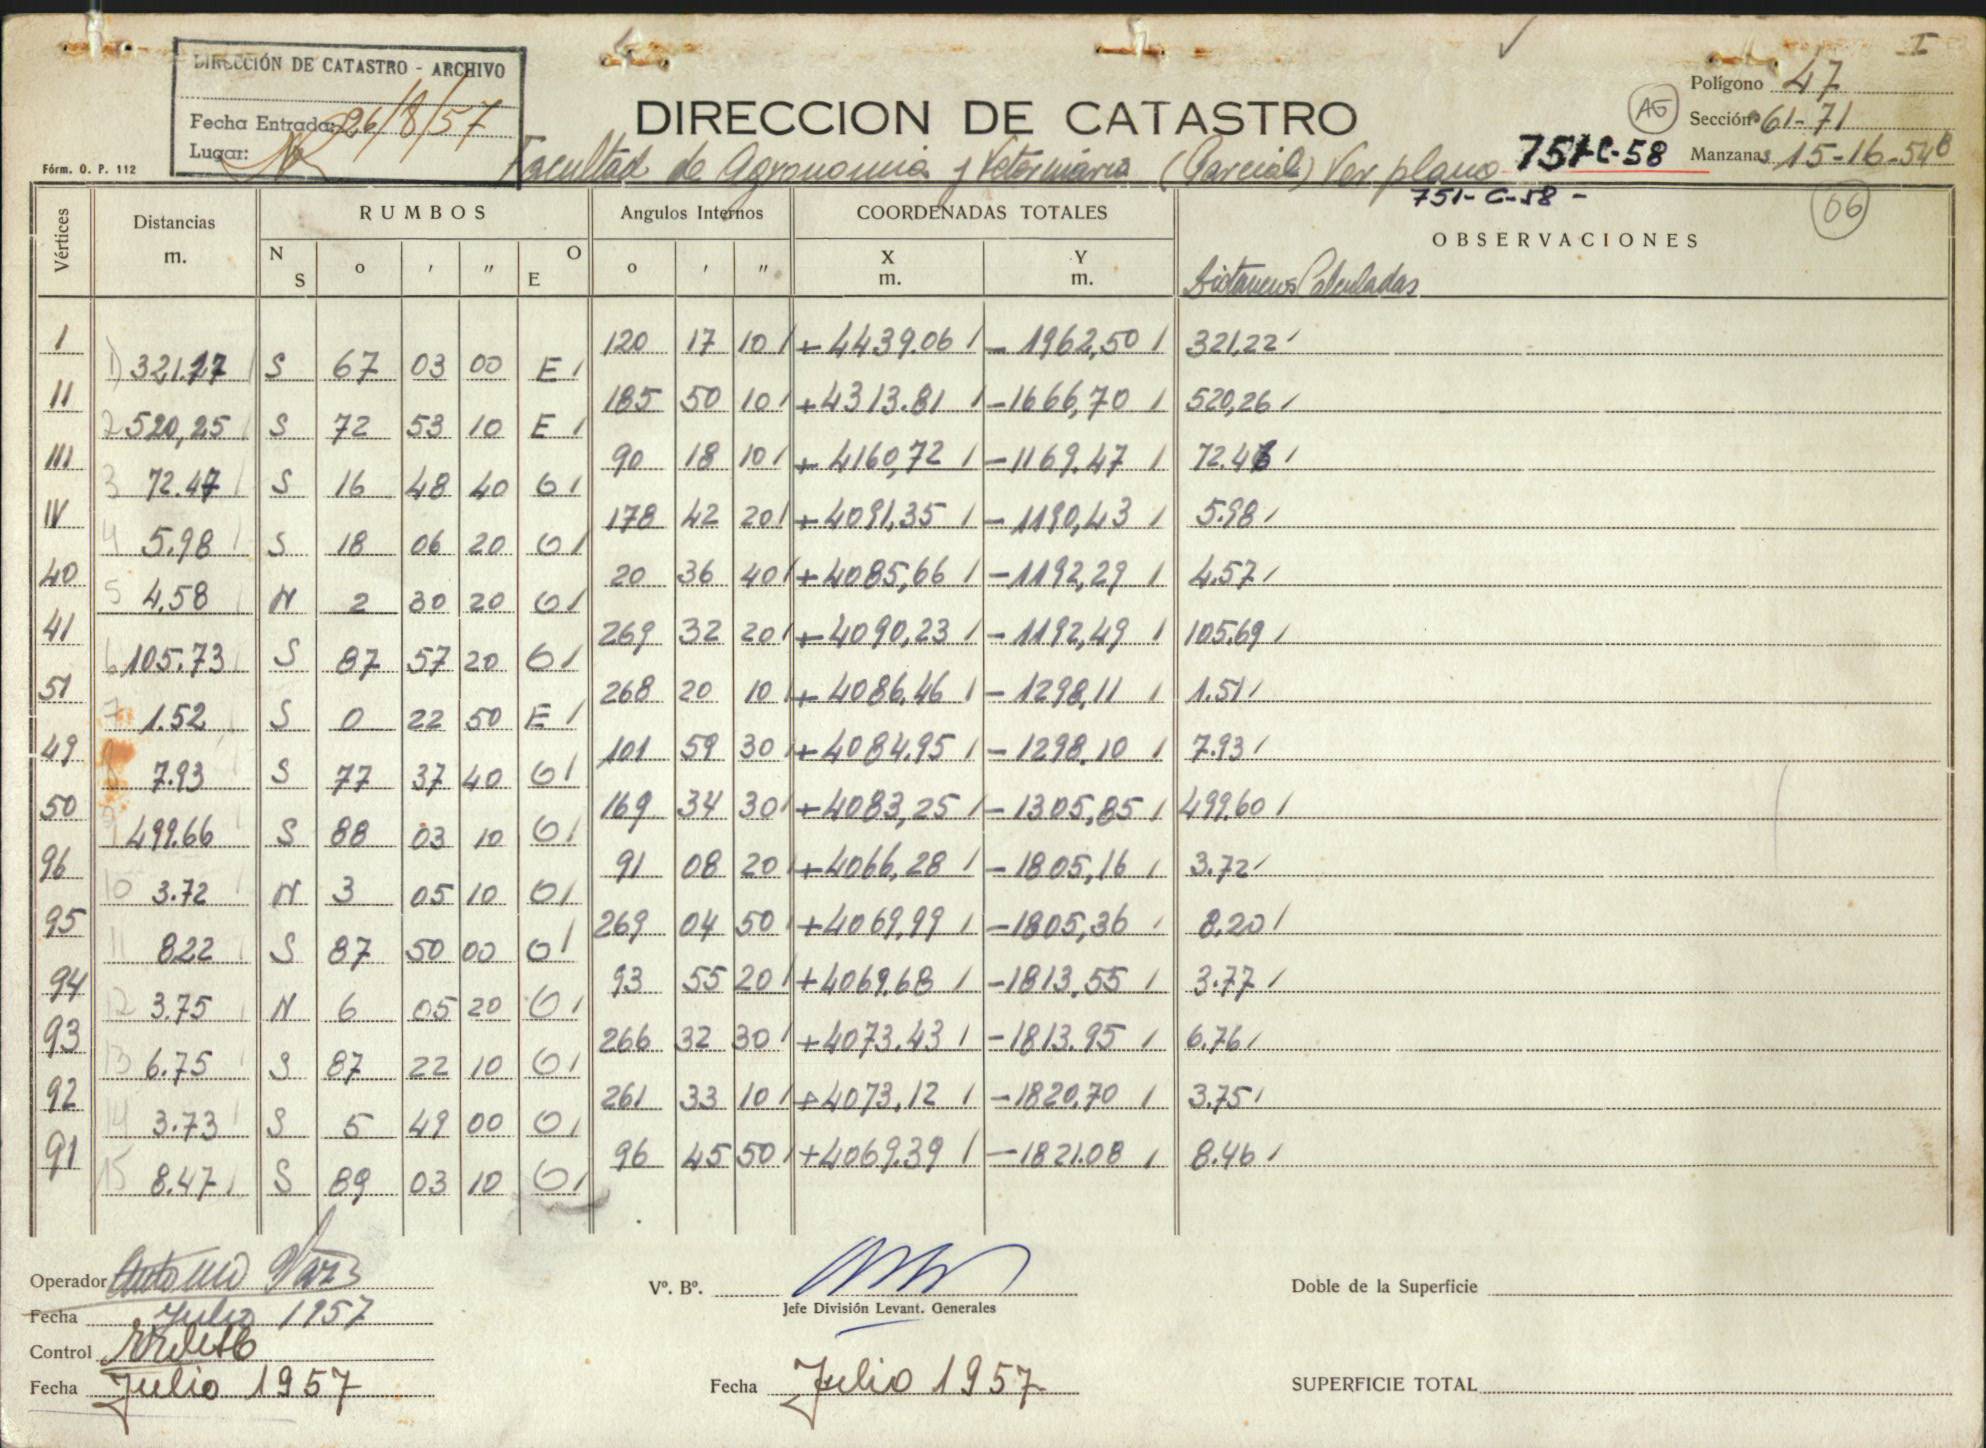 I
DIRECCIÓN DE CATASTRO - ARCHIVO
Fecha Entrada: 26/8/57
Lugar:
Fórm. O. P. 112
DIRECCION DE CATASTRO
Facultad de Agronomia y Veterinaria (Parcial) Ver plano 751-C-58
751-C-58 -
AG
Polígono 47
Sección 61-71
Manzanas 15-16-54b
66
Vértices Distancias m. RUMBOS Angulos Internos COORDENADAS TOTALES OBSERVACIONES
N S o ' " O E o ' " X m. Y m. Distancias Calculadas
I 120 17 10 +4439.06 -1962,50 321,22
1) 321.17 S 67 03 00 E
II 185 50 10 +4313.81 -1666,70 520,26
2 520,25 S 72 53 10 E
III 90 18 10 +4160,72 -1169.47 72.46
3 72.47 S 16 48 40 O
IV 178 42 20 +4091,35 -1190,43 5.98
4 5.98 S 18 06 20 O
40 20 36 40 +4085,66 -1192,29 4.57
5 4.58 N 2 30 20 O
41 269 32 20 +4090,23 -1192,49 105.69
6 105.73 S 87 57 20 O
51 268 20 10 +4086.46 -1298,11 1.51
7 1.52 S 0 22 50 E
49 101 59 30 +4084.95 -1298.10 7.93
8 7.93 S 77 37 40 O
50 169 34 30 +4083,25 -1305,85 499.60
9 499.66 S 88 03 10 O
96 91 08 20 +4066,28 -1805,16 3.72
10 3.72 N 3 05 10 O
95 269 04 50 +4069,99 -1805,36 8.20
11 822 S 87 50 00 O
94 93 55 20 +4069.68 -1813,55 3.77
12 3.75 N 6 05 20 O
93 266 32 30 +4073.43 -1813.95 6.76
13 6.75 S 87 22 10 O
92 261 33 10 +4073,12 -1820.70 3.75
14 3.73 S 5 49 00 O
91 96 45 50 +4069.39 -1821.08 8.46
15 8.47 S 89 03 10 O
Operador Antonio
Fecha Julio 1957
Control
Fecha Julio 1957
Vº. Bº.
Jefe División Levant. Generales
Fecha Julio 1957
Doble de la Superficie
SUPERFICIE TOTAL